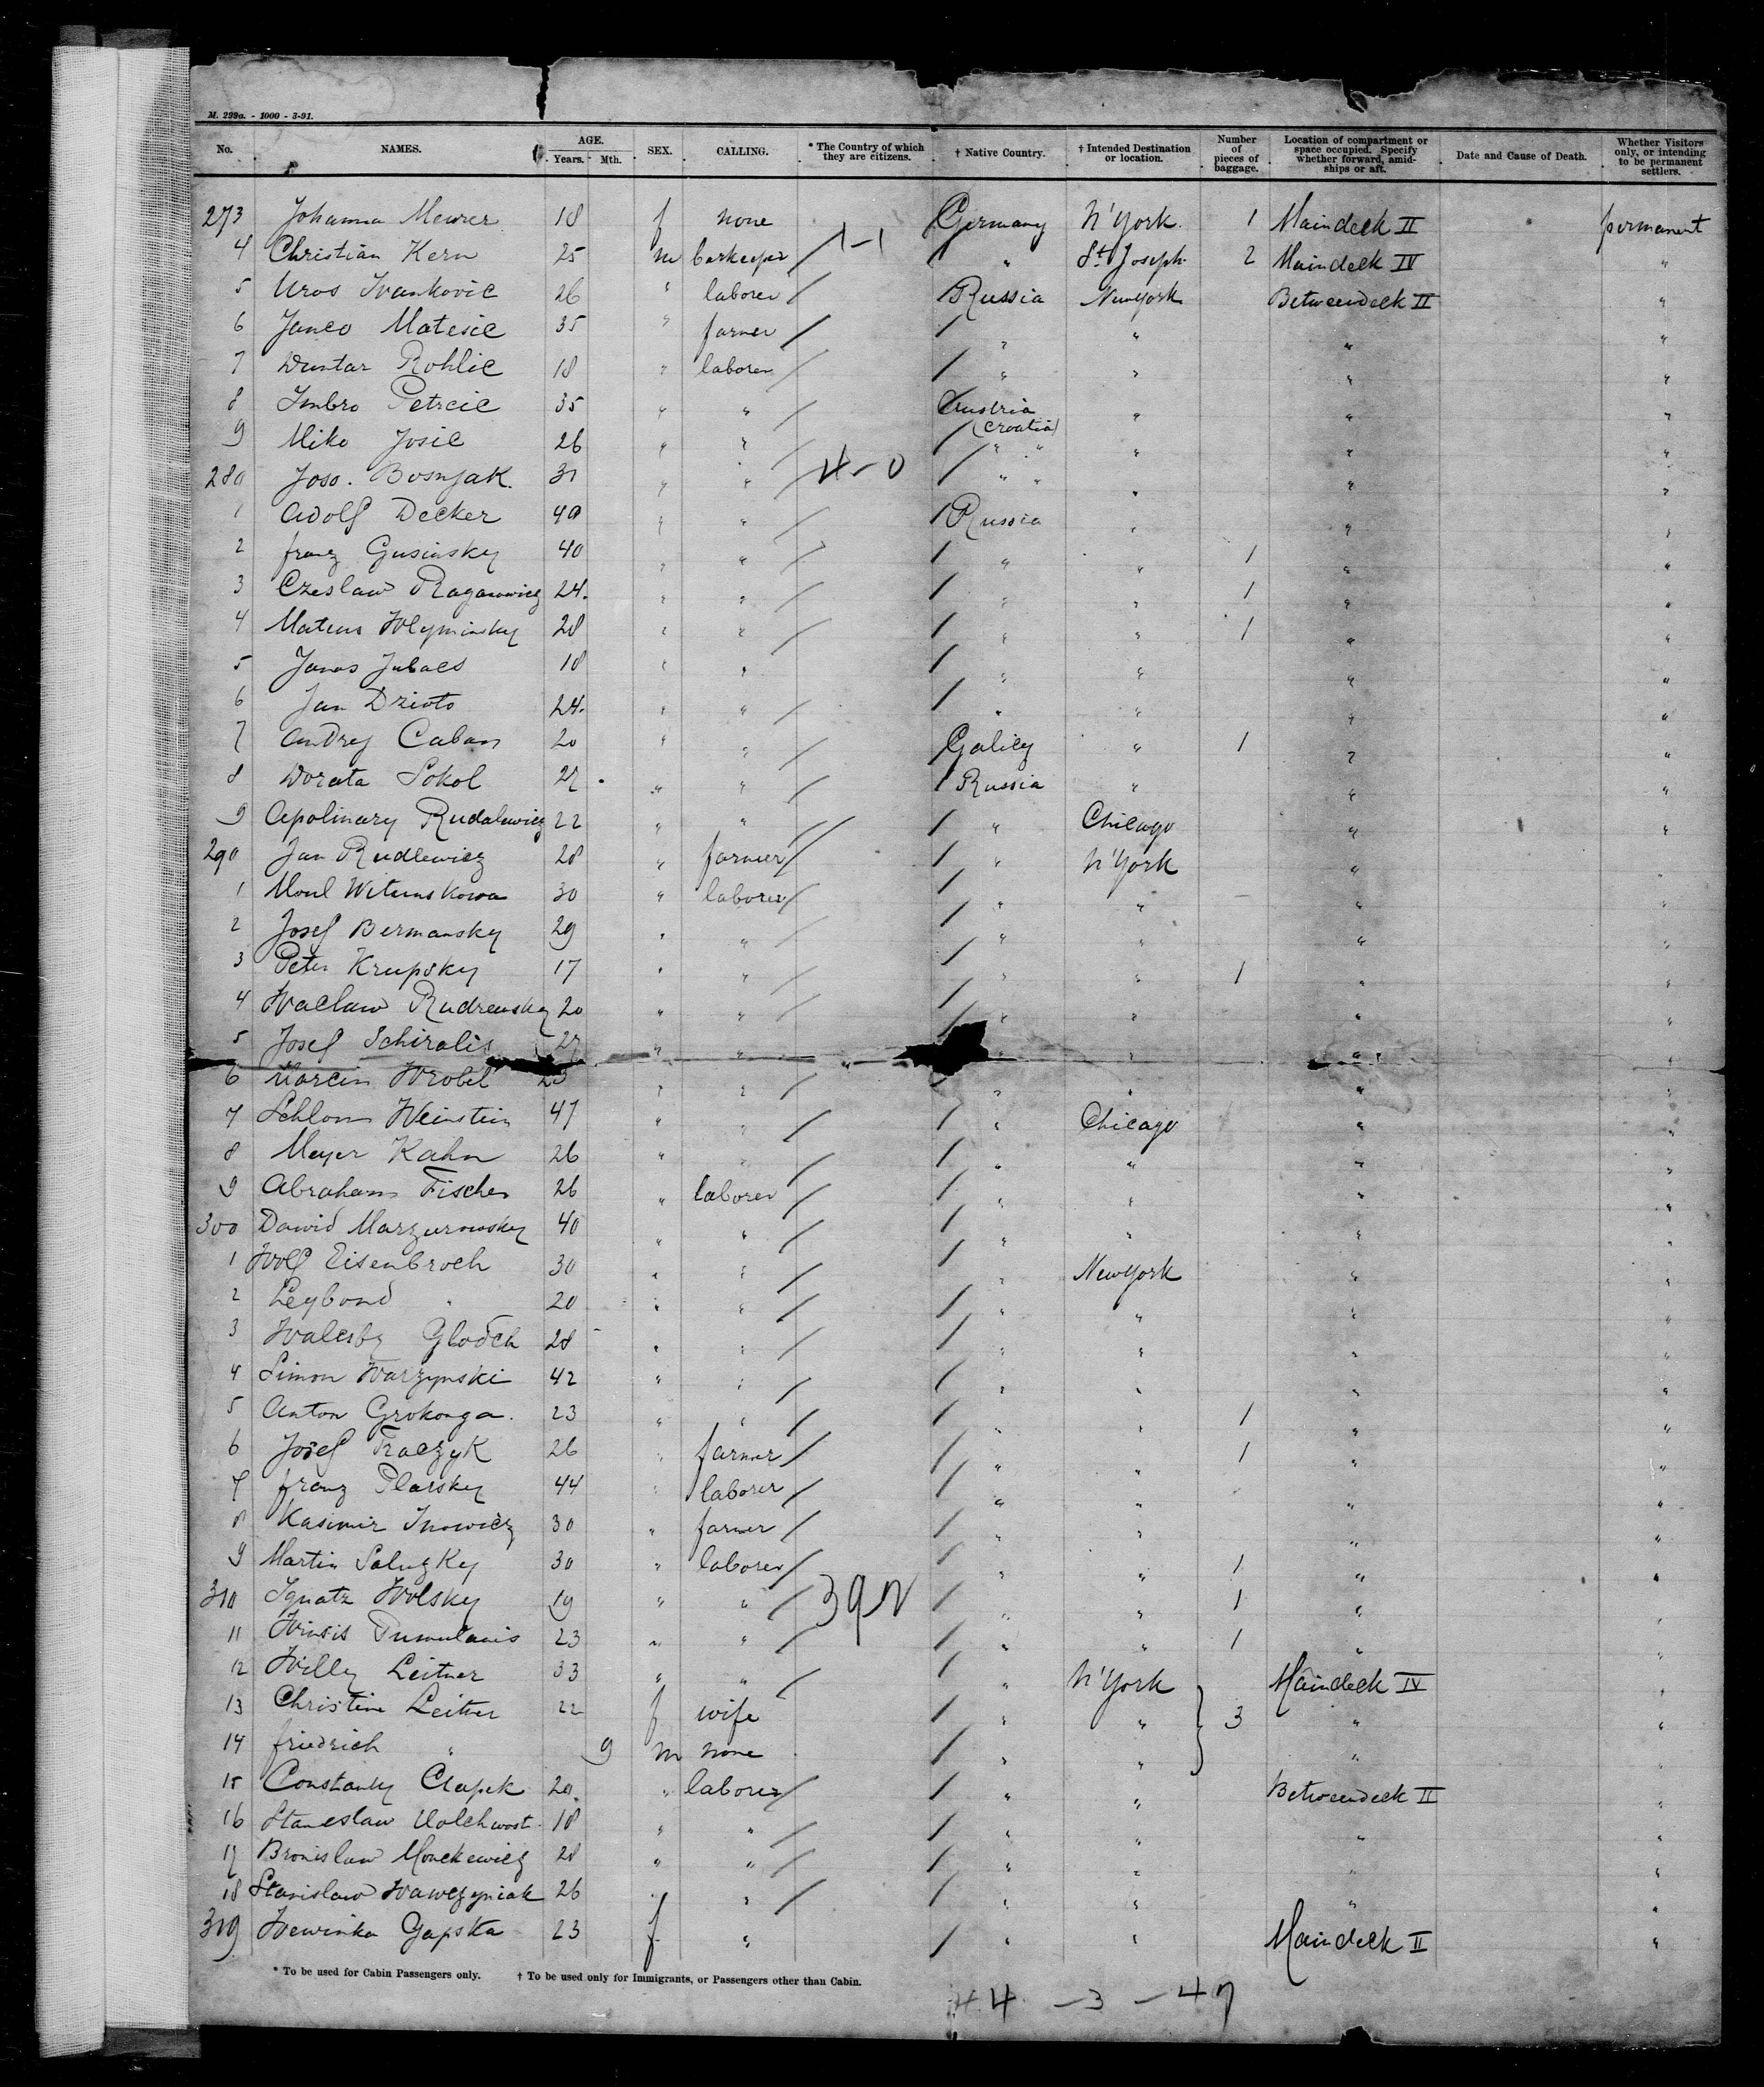 M. 299a. - 1000 - 3-91.
No. NAMES. AGE. Years. Mth. SEX. CALLING. * The Country of which they are citizens. † Native Country. † Intended Destination or location. Number of pieces of baggage. Location of compartment or space occupied. Specify whether forward, amidships or aft. Date and Cause of Death. Whether Visitors only, or intending to be permanent settlers.
273 Johanna Meurer 18 f none Germany N'York. 1 Maindeck II permanent
4 Christian Kern 25 m barkeeper 1-1 " St. Joseph 2 Maindeck IV "
5 Uros Ivankovic 26 " laborer Russia NewYork Betweendeck II "
6 Janco Matesic 35 " farmer " " " "
7 Rohlic 18 " laborer " " " "
8 Imbro Petrcic 35 " " Austria (Croatia) " " "
9 Miko Josic 26 " " " " " " "
280 Joso. Bosnjak. 31 " " 4-0 " " " " "
1 Adolf Decker 40 " " Russia " " "
2 franz Gusinsky 40 " " " " 1 " "
3 Czeslaw 24. " " " " 1 " "
4 Mateus 28 " " " " 1 " "
5 Janos 18 " " " " " "
6 Jan 24. " " " " " "
7 Andrej Caban 20 " " Galicy " 1 " "
8 Worata Sokol 27 " " Russia " " "
9 Apolinary Rudalewicz 22 " " " Chicago " "
290 Jan Rudlewicz 28 " farmer " N'York "
1 30 " laborer " " " "
2 Josef Bermansky 29 " " " " " "
3 Peter Krupsky 17 " " " " 1 " "
4 Waclaw 20 " " " " " "
5 Josef Schiralis 27 " " " " " "
6 Marcin Wrobel " " " " " "
7 Schlom Weinstein 47 " " " Chicago " "
8 Meyer Kahn 26 " " " " " "
9 Abraham Fischer 26 " laborer " " " "
300 Dawid Marzurowsky 40 " " " " " "
1 Wolf Eisenbroch 30 " " " NewYork " "
2 Leybond " 20 " " " " " "
3 28 " " " " " "
4 Simon Warzynski 42 " " " " " "
5 Anton Grokonga. 23 " " " " 1 " "
6 Josef Traczyk 26 " farmer " " 1 " "
7 franz Plarsky 44 " laborer " " " "
8 Kasimir 30 " farmer " " " "
9 Martin 30 " laborer " " 1 " "
310 Ignatz Wolsky 19 " " " " 1 " "
11 23 " " " " 1 " "
12 Willy Leitner 33 " " " N'York Maindeck IV "
13 Christine Leitner 22 f wife " " 3 " "
14 friedrich " 9 m none " " " "
15 Constanty 20. " laborer " " Betweendeck II "
16 Staneslaw 18 " " " " " "
17 Bronislaw 28 " " " " " "
18 Stanislaw Wawczyniak 26 " " " " " "
319 Gapska 23 f " " " Maindeck II "
* To be used for Cabin Passengers only. † To be used only for Immigrants, or Passengers other than Cabin.
44 - 3 - 47